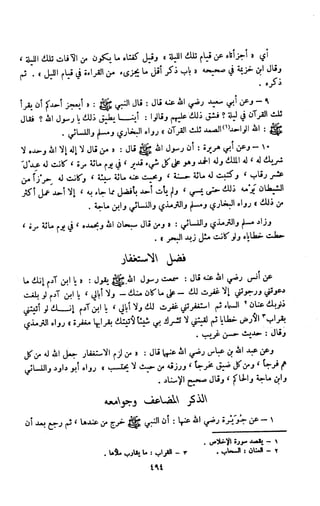 أي « أجزأتاه عن قيام تلك الليلة » وقيل كفتاه ما يكون من الآفات تلك الليلة ،
وقال ابن خزيمة في صحيحه « باب ذكر أقل ما يجزىء من القراءة في قيام الليل » . ثم
ذكره .
٩ – وعن أبي سعيد رضي الله عنه قال : قال النبي ﷺ : « أيعجز أحدكم أن يقرأ
ثلث القرآن في ليلة ؟ فشق ذلك عليهم وقالوا : أينــا يطيق ذلك يا رسول الله ؟ فقال
ﷺ : الله الواحد(١) الصمد ثلث القرآن » رواه البخاري ومسلم والنسائي .
١٠ – وعن أبي هريرة : أن رسول الله ﷺ قال : « من قال لا إله إلا الله وحده لا
شريك له ، له الملك وله الحمد وهو على كل شيء قدير ، في يوم مائة مرة ، كانت له عِدل
عشر رقاب ، وكتبت له مائة حسنة ، ومحيت عنه مائة سيئة ، وكانت له حِرزاً من
الشيطان يَومه ذلك حتى يمسي ، ولم يأت أحد بأفضل مما جاء به ، إلا أحد عمل أكثر
من ذلك » رواه البخاري ومسلم والترمذي والنسائي وابن ماجة .
وزاد مسلم والترمذي والنسائي : « ومن قال سبحان الله وبحمده ، في يوم مائة مرة ،
حطت خطاياه ولو كانت مثل زبد البحر » .
فضل الاستغفار
عن أنس رضي الله عنه قال : سمعت رسول الله ﷺ يقول : « يا ابن آدم إنك ما
دعوتني ورجوتني إلا غفرت لك – على ما كان منك – ولا أبالي ، يا ابن آدم لو بلغت
ذنوبك عنان٢ السماء ثم استغفرتني غفرت لك ولا أبالي ، يا ابن آدم إنــك لو أتيتني
بقراب٣ الأرض خطايا ثم لقيتني لا تشرك بي شيئاً لأتيتك بقرابها مغفرة » رواه الترمذي
وقال : حديث حسن غريب .
وعن عبد الله بن عباس رضي الله عنهما قال : « من لزم الاستغفار جعل الله له من كل
هم فرجاً ، ومن كل ضيق مخرجاً ، ورزقه من حيث لا يحتسب » رواه أبو داود والنسائي
وابن ماجة والحاكم ، وقال صحيح الإسناد .
الذكر المضاعف وجوامعه
١ – عن جُوَيْرِية رضي الله عنها : أن النبي ﷺ خرج من عندها ، ثم رجع بعد أن
١ – يقصد سورة الإخلاص .
٢ – العنان : السحاب . ٣ – القراب : ما يقارب ملأها .
٤٩٤